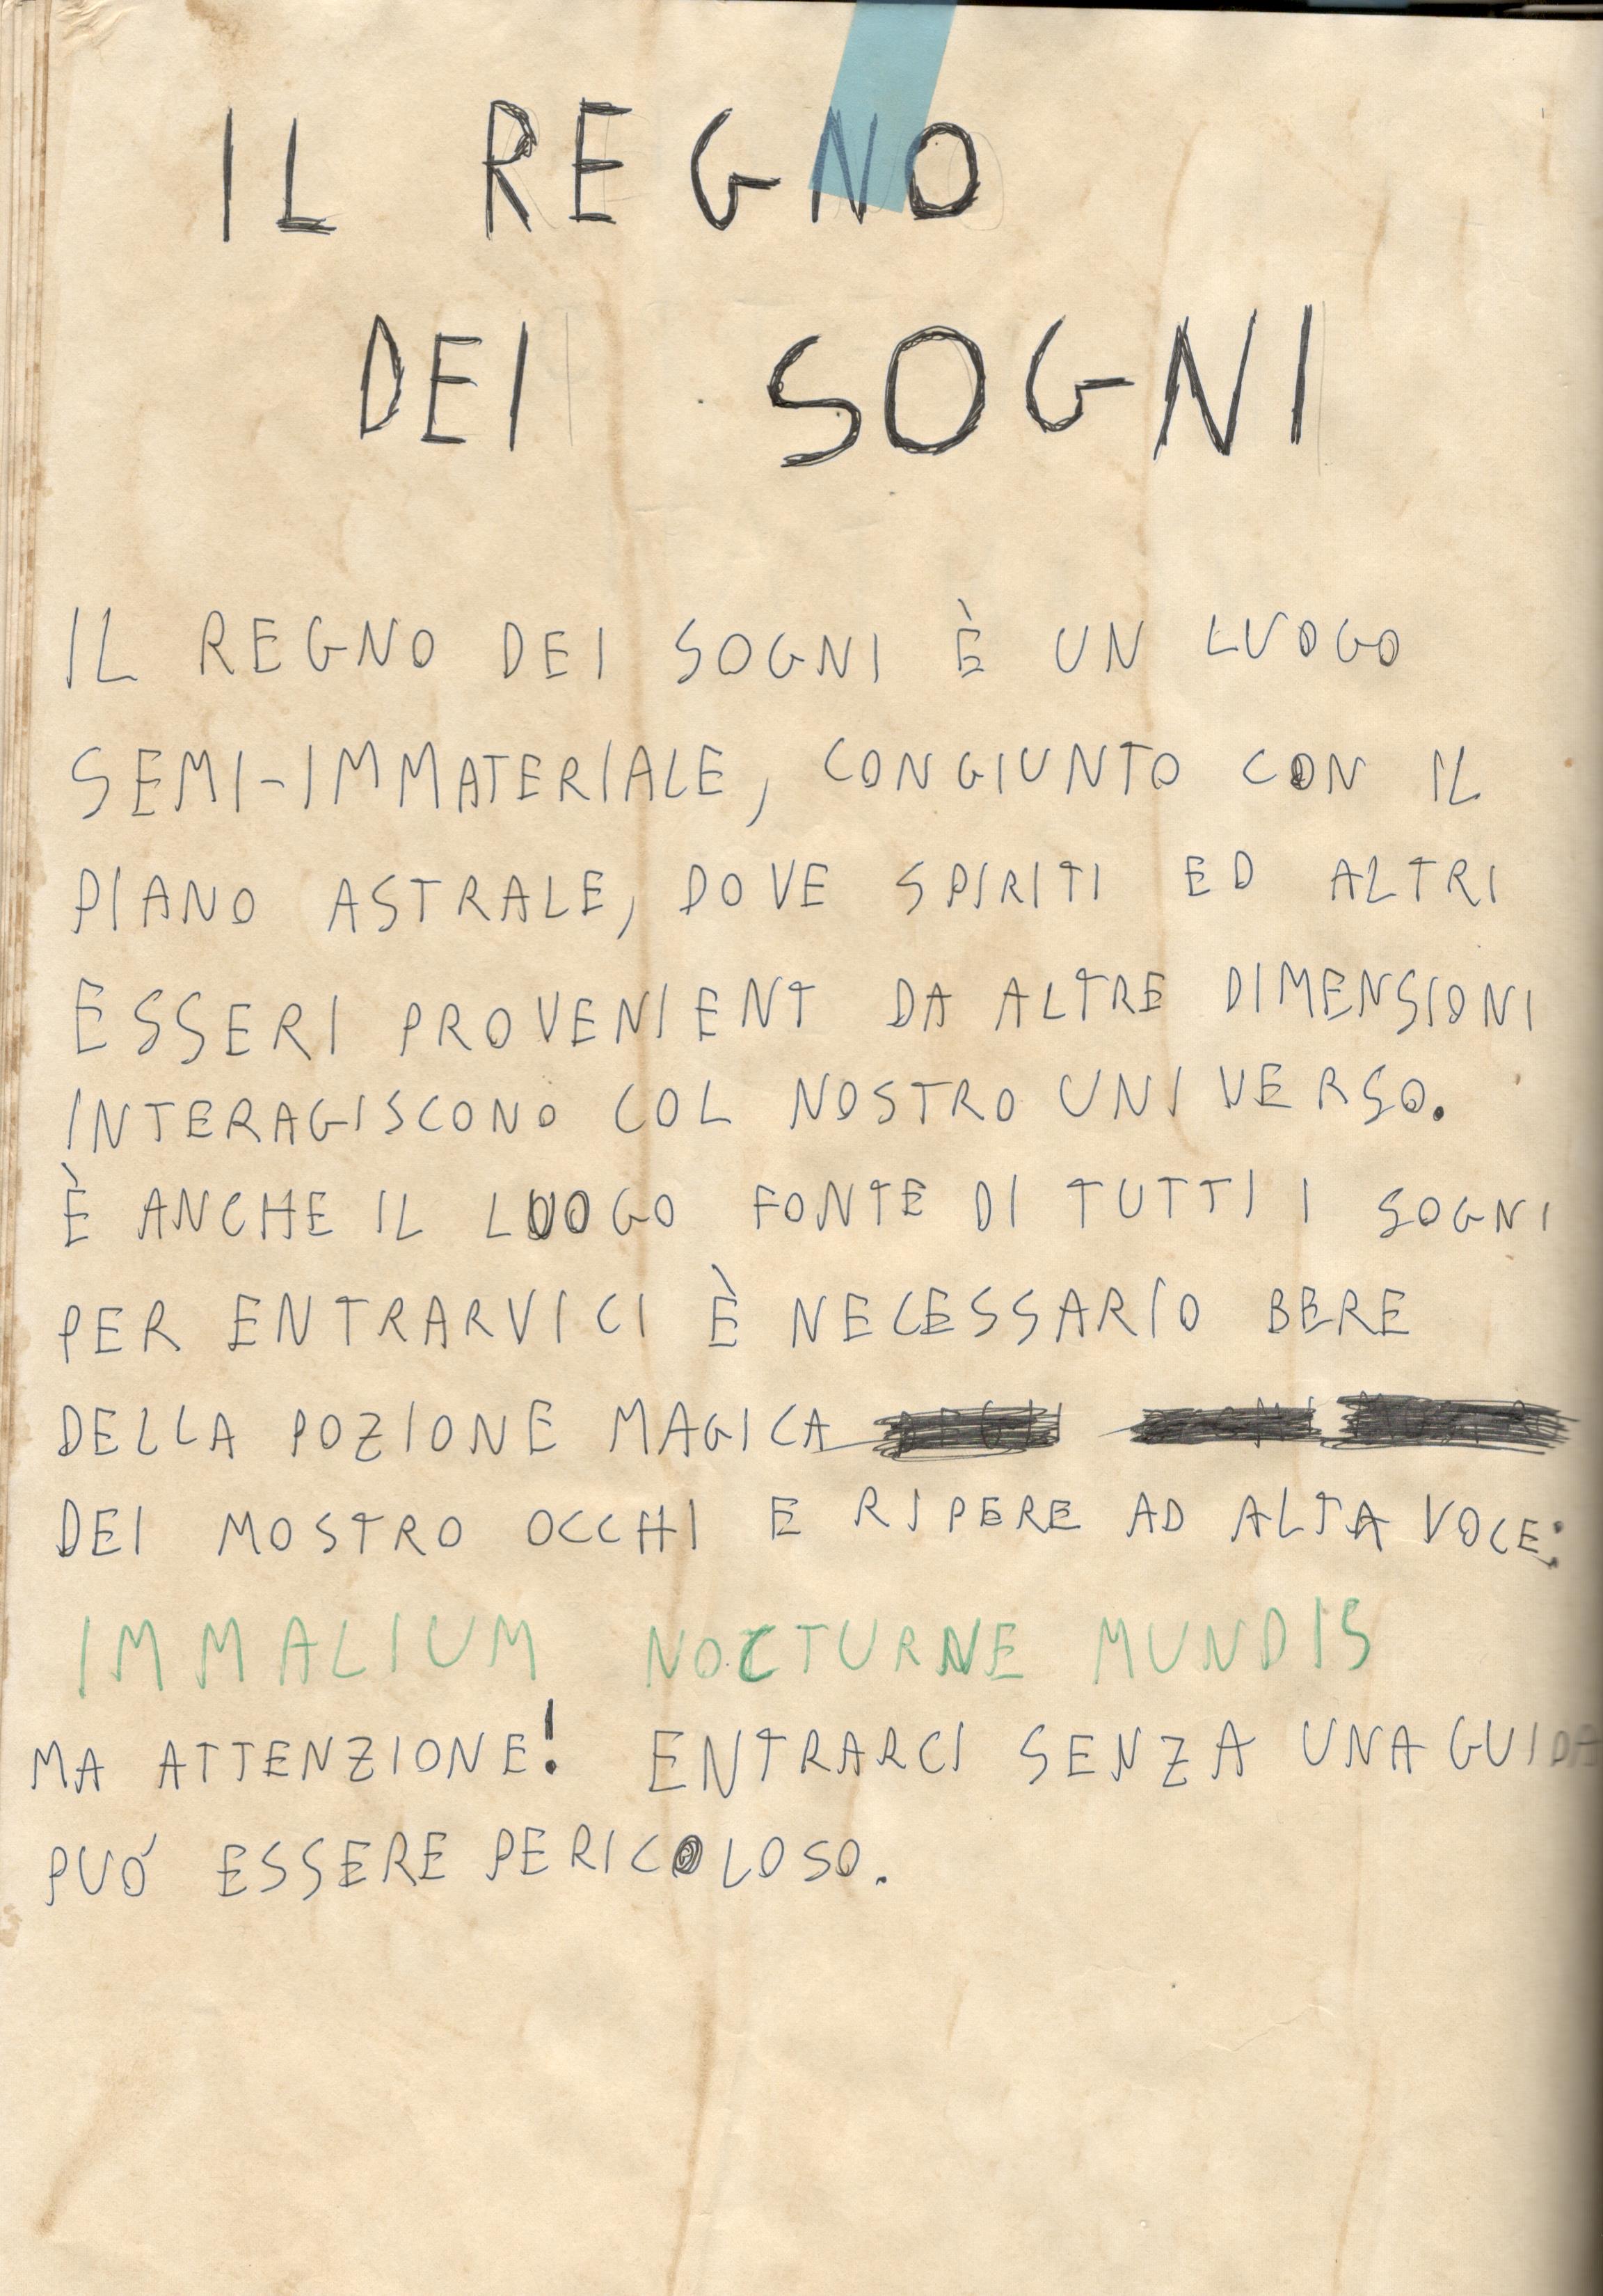 IL REGNO
DEI SOGNI
IL REGNO DEI SOGNI È UN LUOGO
SEMI-IMMATERIALE, CONGIUNTO CON IL
PIANO ASTRALE, DOVE SPIRITI ED ALTRI
ESSERI PROVENIENT DA ALTRE DIMENSIONI
INTERAGISCONO COL NOSTRO UNIVERSO.
È ANCHE IL LUOGO FONTE DI TUTTI I SOGNI
PER ENTRARVICI È NECESSARIO BERE
DELLA POZIONE MAGICA
DEI MOSTRO OCCHI E RIPERE AD ALTA VOCE:
IMMALIUM NOCTURNE MUNDIS
MA ATTENZIONE! ENTRARCI SENZA UNA GUIDA
PUÓ ESSERE PERICOLOSO.